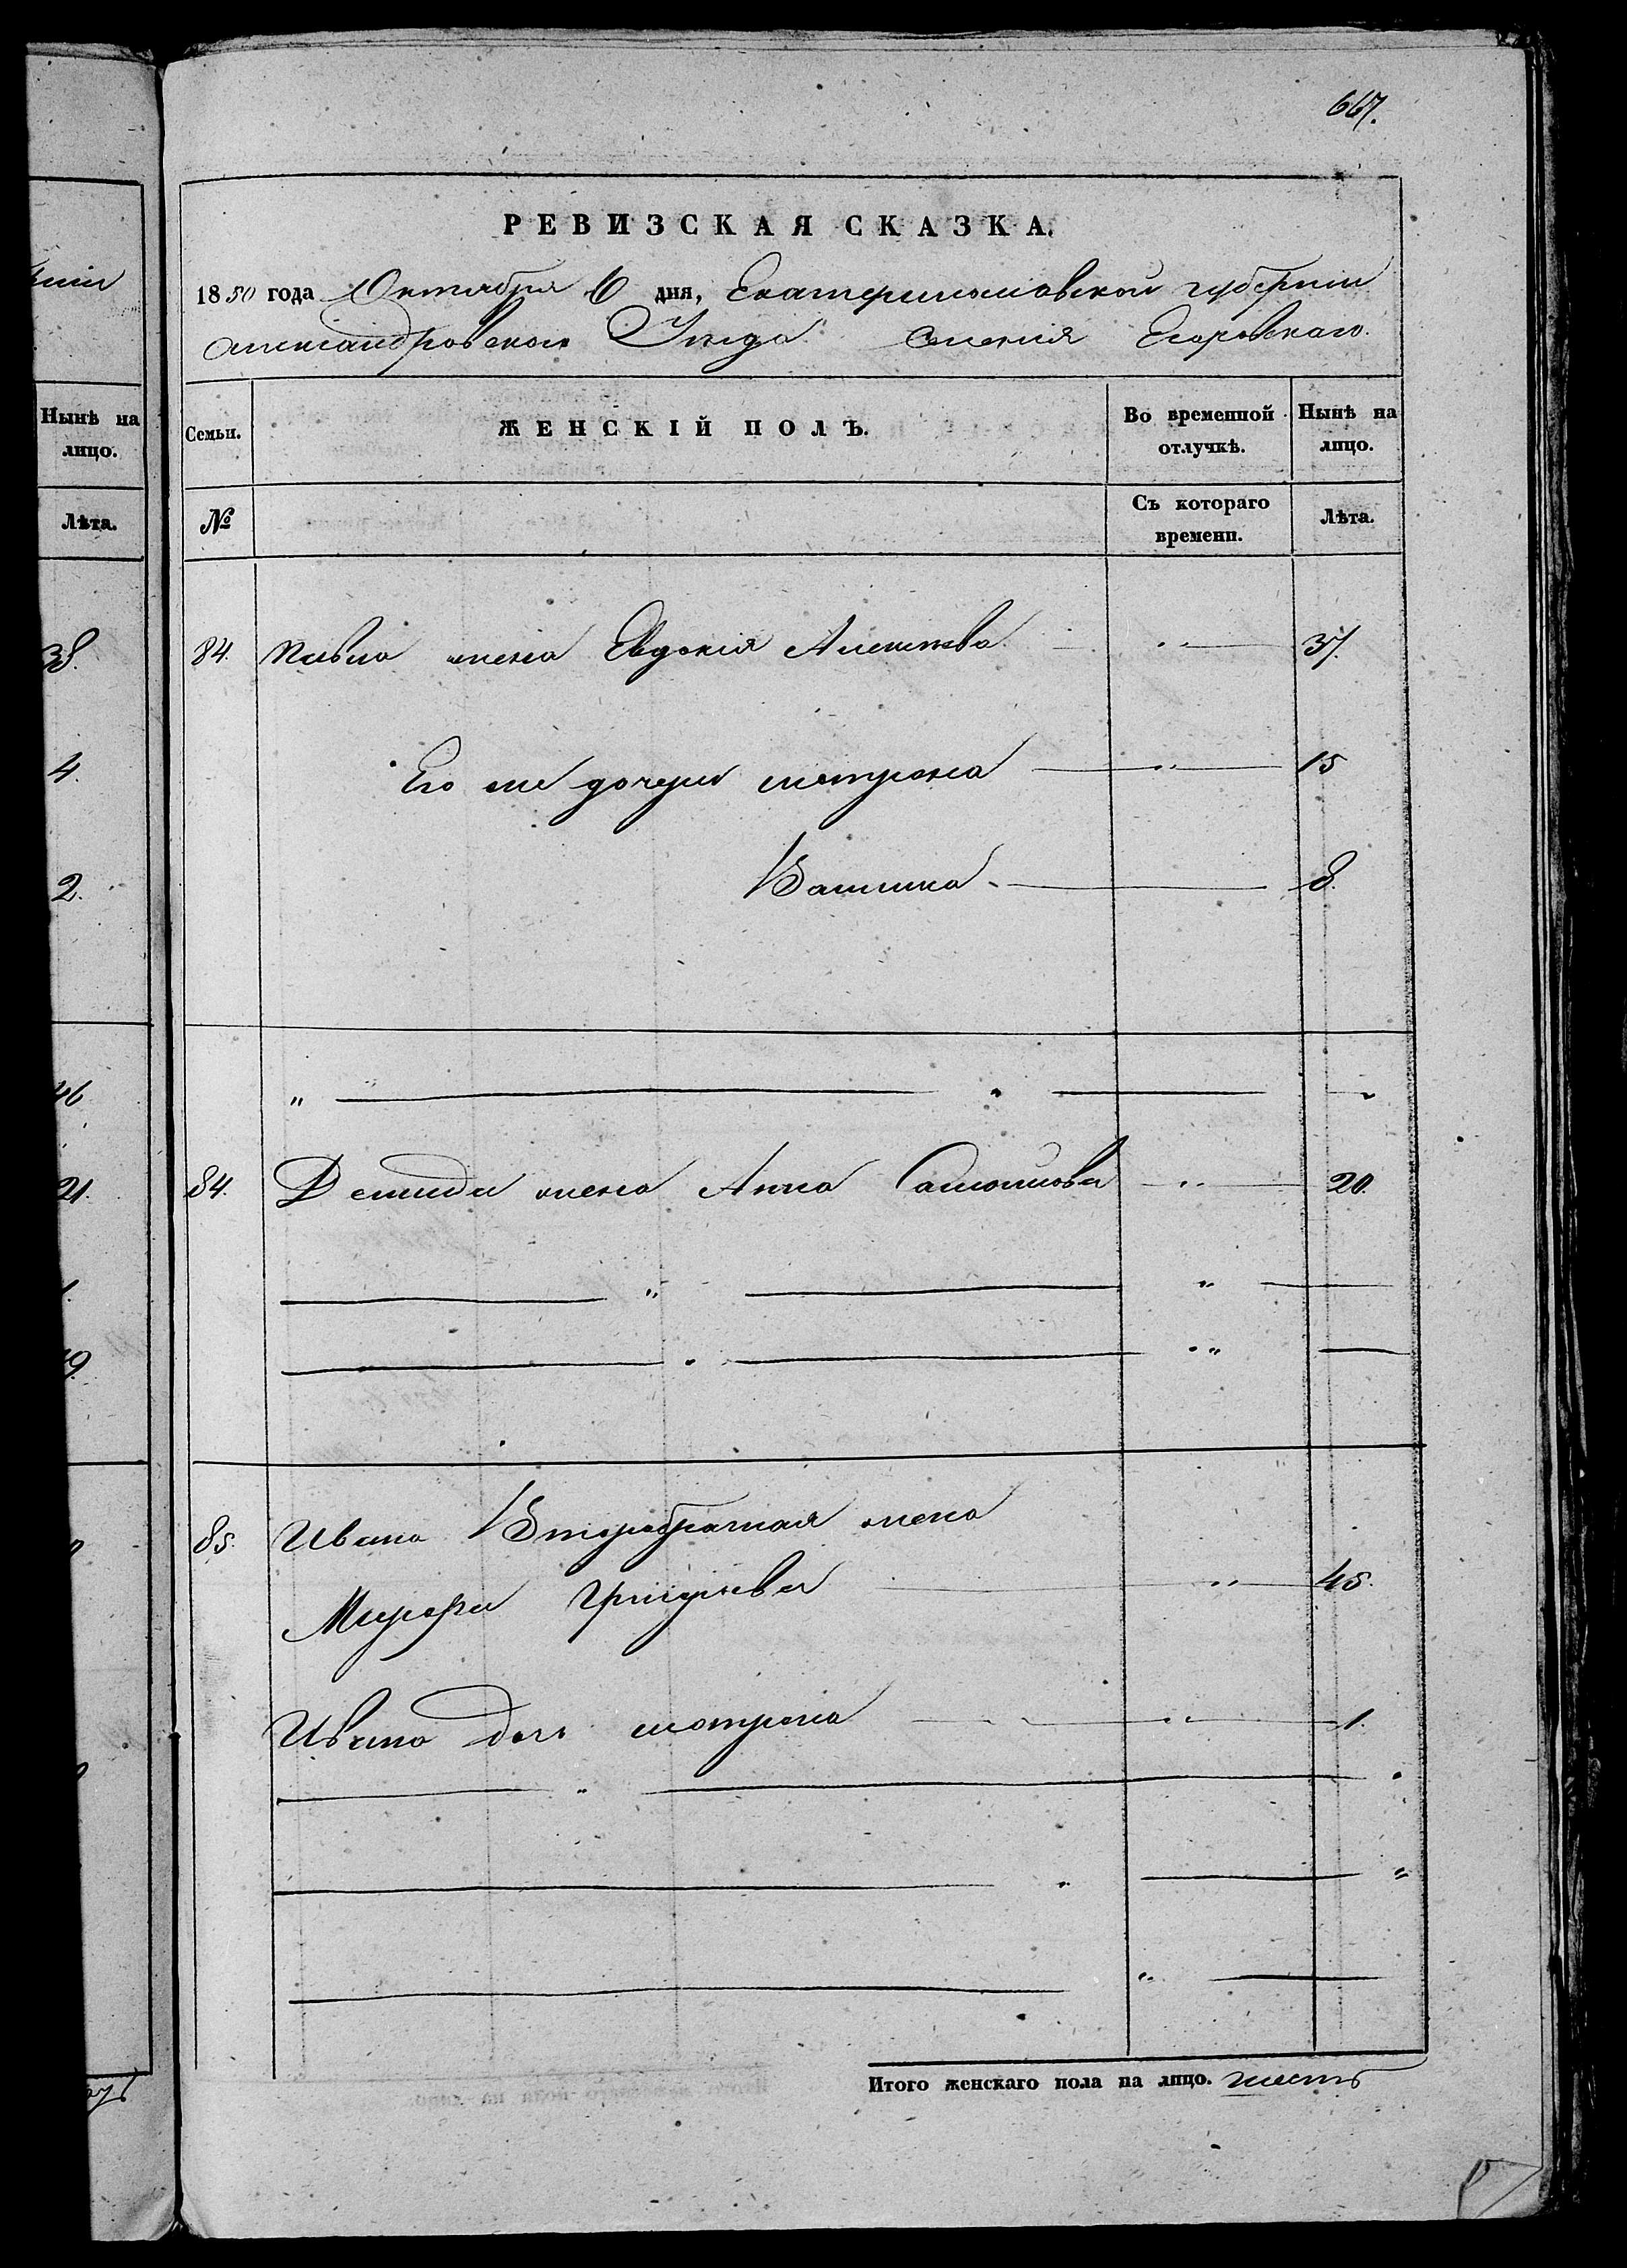 667.
РЕВИЗСКАЯ СКАЗКА.
1850 года Октября 6 дня, Екатеринославской губерніи
Александровского Уезда Селенія Егоровскаго.
Нынѣ на лицо.
Лѣта.
38.
4.
2.
46
21.
Семьи.
ЖЕНСКІЙ ПОЛЪ.
Во временной отлучкѣ.
Нынѣ на лицо.
№
Съ котораго времени.
Лѣта.
84. Павла жена Евдокія Алексѣева " 37.
Его же дочери Мотрона " 15
8.
84. Демида жена Анна Самойлова " 20.
85. Ивана Второбрачная жена
Марфа Григорьева " 45.
Ивана дочь Мотрона " 1.
Итого женскаго пола на лицо. шесть